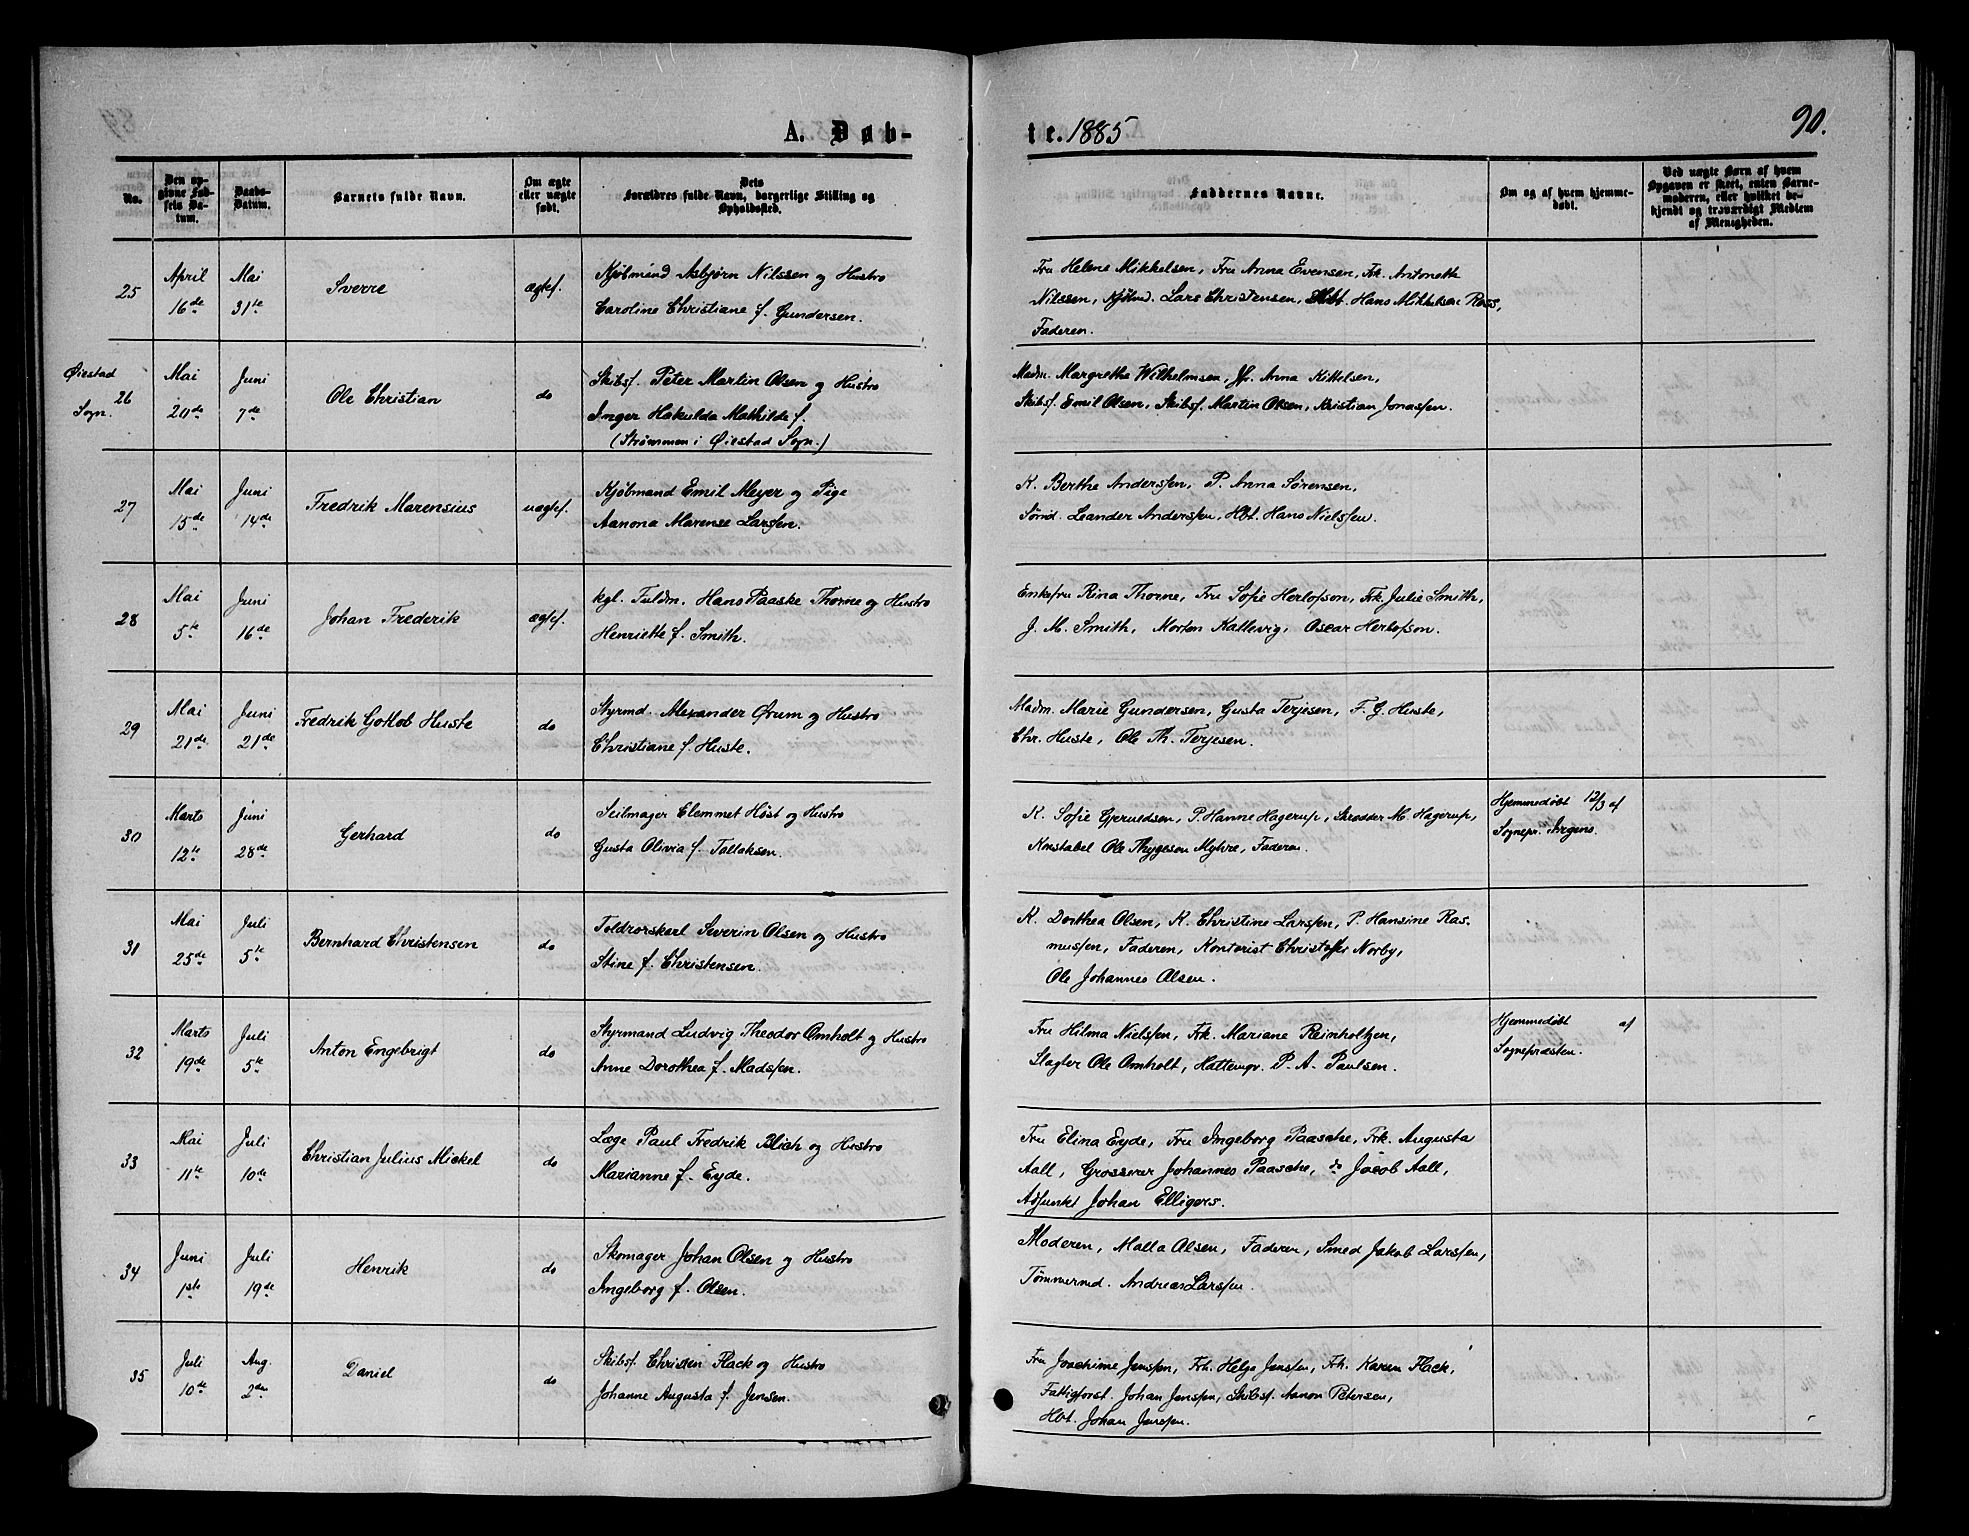 A. Døb-
te. 1885
90.
No.
Den op-
givne Fød-
sels Da-
tum.
Daabs-
Datum.
Barnets fulde Navn.
Om ægte
eller uægte
født.
Dets
Forældres fulde Navn, borgerlige Stilling og
Opholdssted.
Faddernes Navne.
Om og af hvem hjemme-
døbt.
Ved uægte Børn af hvem
Opgaven er skeet, enten Barne-
moderen, eller hvilket be-
kjendt og troværdigt Medlem
af Menigheden.
25
April
16de
Mai
31te
Sverre
ægtef.
Kjøbmand Asbjørn Nilssen og Hustro
Caroline Christiane f. Gundersen.
Fru Helene Mikkelsen, Fru Anna Evensen, Frk. Antonette
Nilssen, Kjøbmd. Lars Christensen, Skbt. Hans Mikkelsen Ross,
Faderen.
Øiestad
Sogn.
26
Mai
20de
Juni
7de
Ole Christian
do
Skibsf. Peter Martin Olsen og Hustro
Inger Hakulda Mathilde f.
(Strømmen i Øiestad Sogn.)
Madm. Margrethe Wilhelmsen, Jfr. Anna Kittelsen,
Skibsf. Emil Olsen, Skibsf. Martin Olsen, Kristian Jonassen.
27
Mai
15de
Juni
14de
Fredrik Marensius
uægtef.
Kjøbmand Emil Meyer og Pige
Aanona Marense Larssen.
K. Berthe Anderssen, P. Anna Sørensen,
Sømd. Leander Anderssen, Hbt. Hans Nielssen.
28
Mai
5te
Juni
16de
Johan Frederik
ægtef.
kgl. Fuldm. Hans Paaske Thorne og Hustro
Henriette f. Smith.
Enkefru Rina Thorne, Fru Sofie Herlofson, Frk. Julie Smith,
J. M. Smith, Morten Kallevig, Oscar Herlofson.
29
Mai
21de
Juni
21de
Fredrik Gotlob Huste
do
Styrmd. Alexander Ørum og Hustro
Christiane f. Huste.
Madm. Marie Gundersen, Gusta Terjesen, F. G. Huste,
Chr. Huste, Ole Th. Terjesen.
30
Marts
12te
Juni
28de
Gerhard
do
Seilmager Clemmet Høst og Hustro
Gusta Olivia f. Tallaksen.
K. Sofie Gjeruldsen, P. Hanne Hagerup, Skredder M. Hagerup,
Konstabel Ole Thygesen Myhre, Faderen.
Hjemmedøbt 12/3 af
Sognepr. Irgens.
31
Mai
25de
Juli
5te
Bernhard Christensen
do
Toldrorskarl Severin Olsen og Hustro
Stine f. Christensen.
K. Dorthea Olsen, K. Christine Larssen, P. Hansine Ras-
mussen, Faderen, Kontorist Christoffer Norby,
Ole Johannes Olsen.
32
Marts
19de
Juli
5te
Anton Engebrigt
do
Styrmand Ludvig Theodor Omholt og Hustro
Anne Dorothea f. Madssen.
Fru Hilma Nielssen, Frk. Mariane Reinholtzen,
Slagter Ole Omholt, Hattemgr. P. A. Paulsen.
Hjemmedøbt af
Sognepræsten.
33
Mai
11te
Juli
10de
Christian Julius Mickel
do
Læge Paul Fredrik Blich og Hustro
Marianne f. Eyde.
Fru Elina Eyde, Fru Ingeborg Paasche, Frk. Augusta
Aall, Grosserer Johannes Paasche, do Jacob Aall,
Adjunkt Johan Elligers.
34
Juni
1ste
Juli
19de
Henrik
do
Skomager Johan Olsen og Hustro
Ingeborg f. Olsen.
Moderen, Malla Olsen, Faderen, Smed Jakob Larssen,
Tømmermd. Andreas Larssen.
35
Juli
10de
Aug.
2den
Daniel
do
Skibsf. Christen Flack og Hustro
Johanne Augusta f. Jensen.
Fru Joachime Jenssen, Frk. Helga Jenssen, Frk. Karen Flack,
Fattigforst. Johan Jenssen, Skibsf. Aanon Petersen,
Hbt. Johan Jenssen.